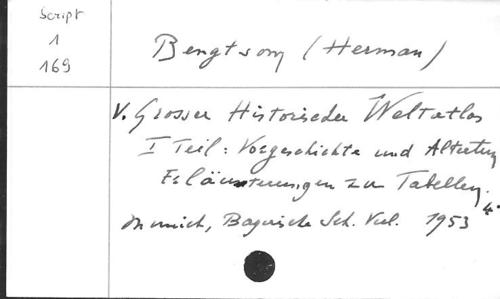 Script
1
169
Bengtson (Herman)
V. Grosser Historischer Weltatlas
I Teil: Vorgeschichte und Altertum
Erläuterungen zu Tabellen.
4°
Munich, Bayerische Sch. Verl. 1953